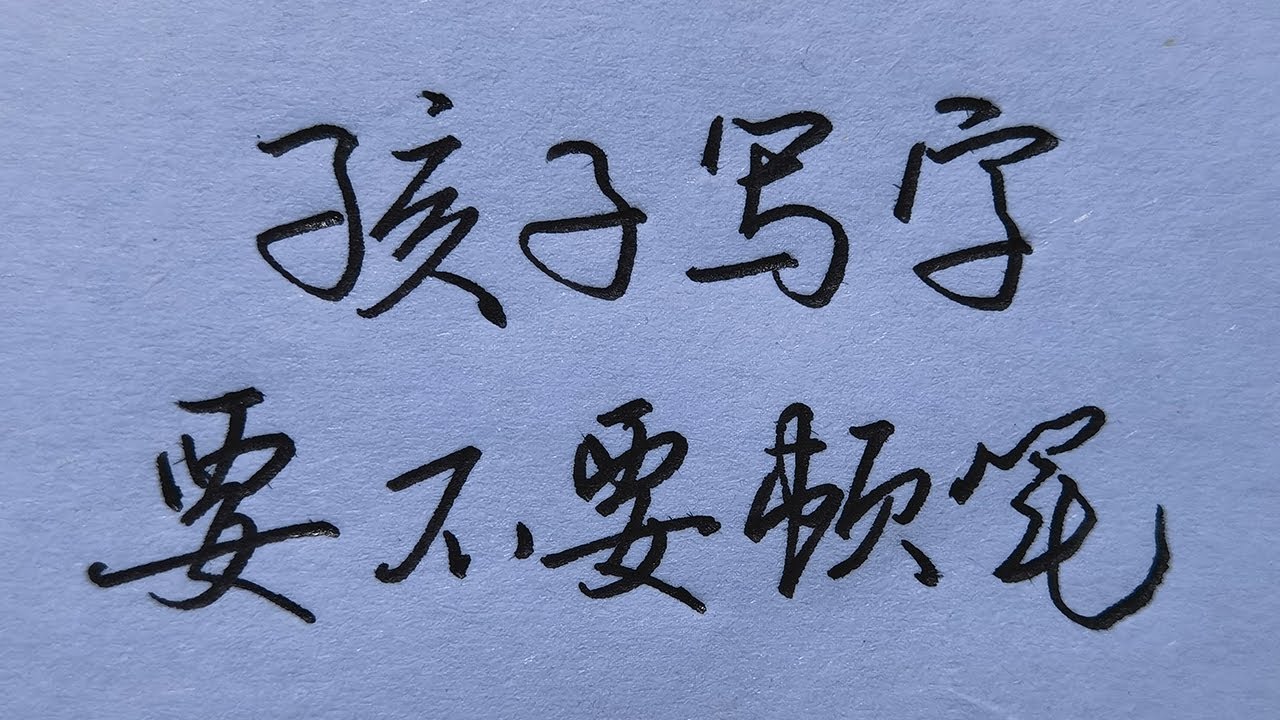 孩子写字
要不要顿笔